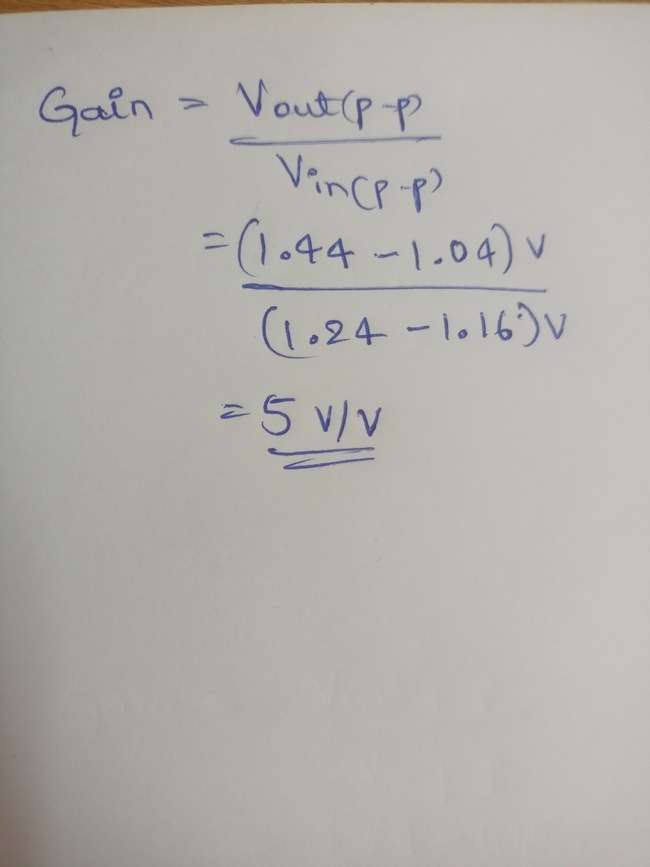 Gain = Vout(p-p)
Vin(p-p)
= (1.44 - 1.04) V
(1.24 - 1.16) V
= 5 V/V